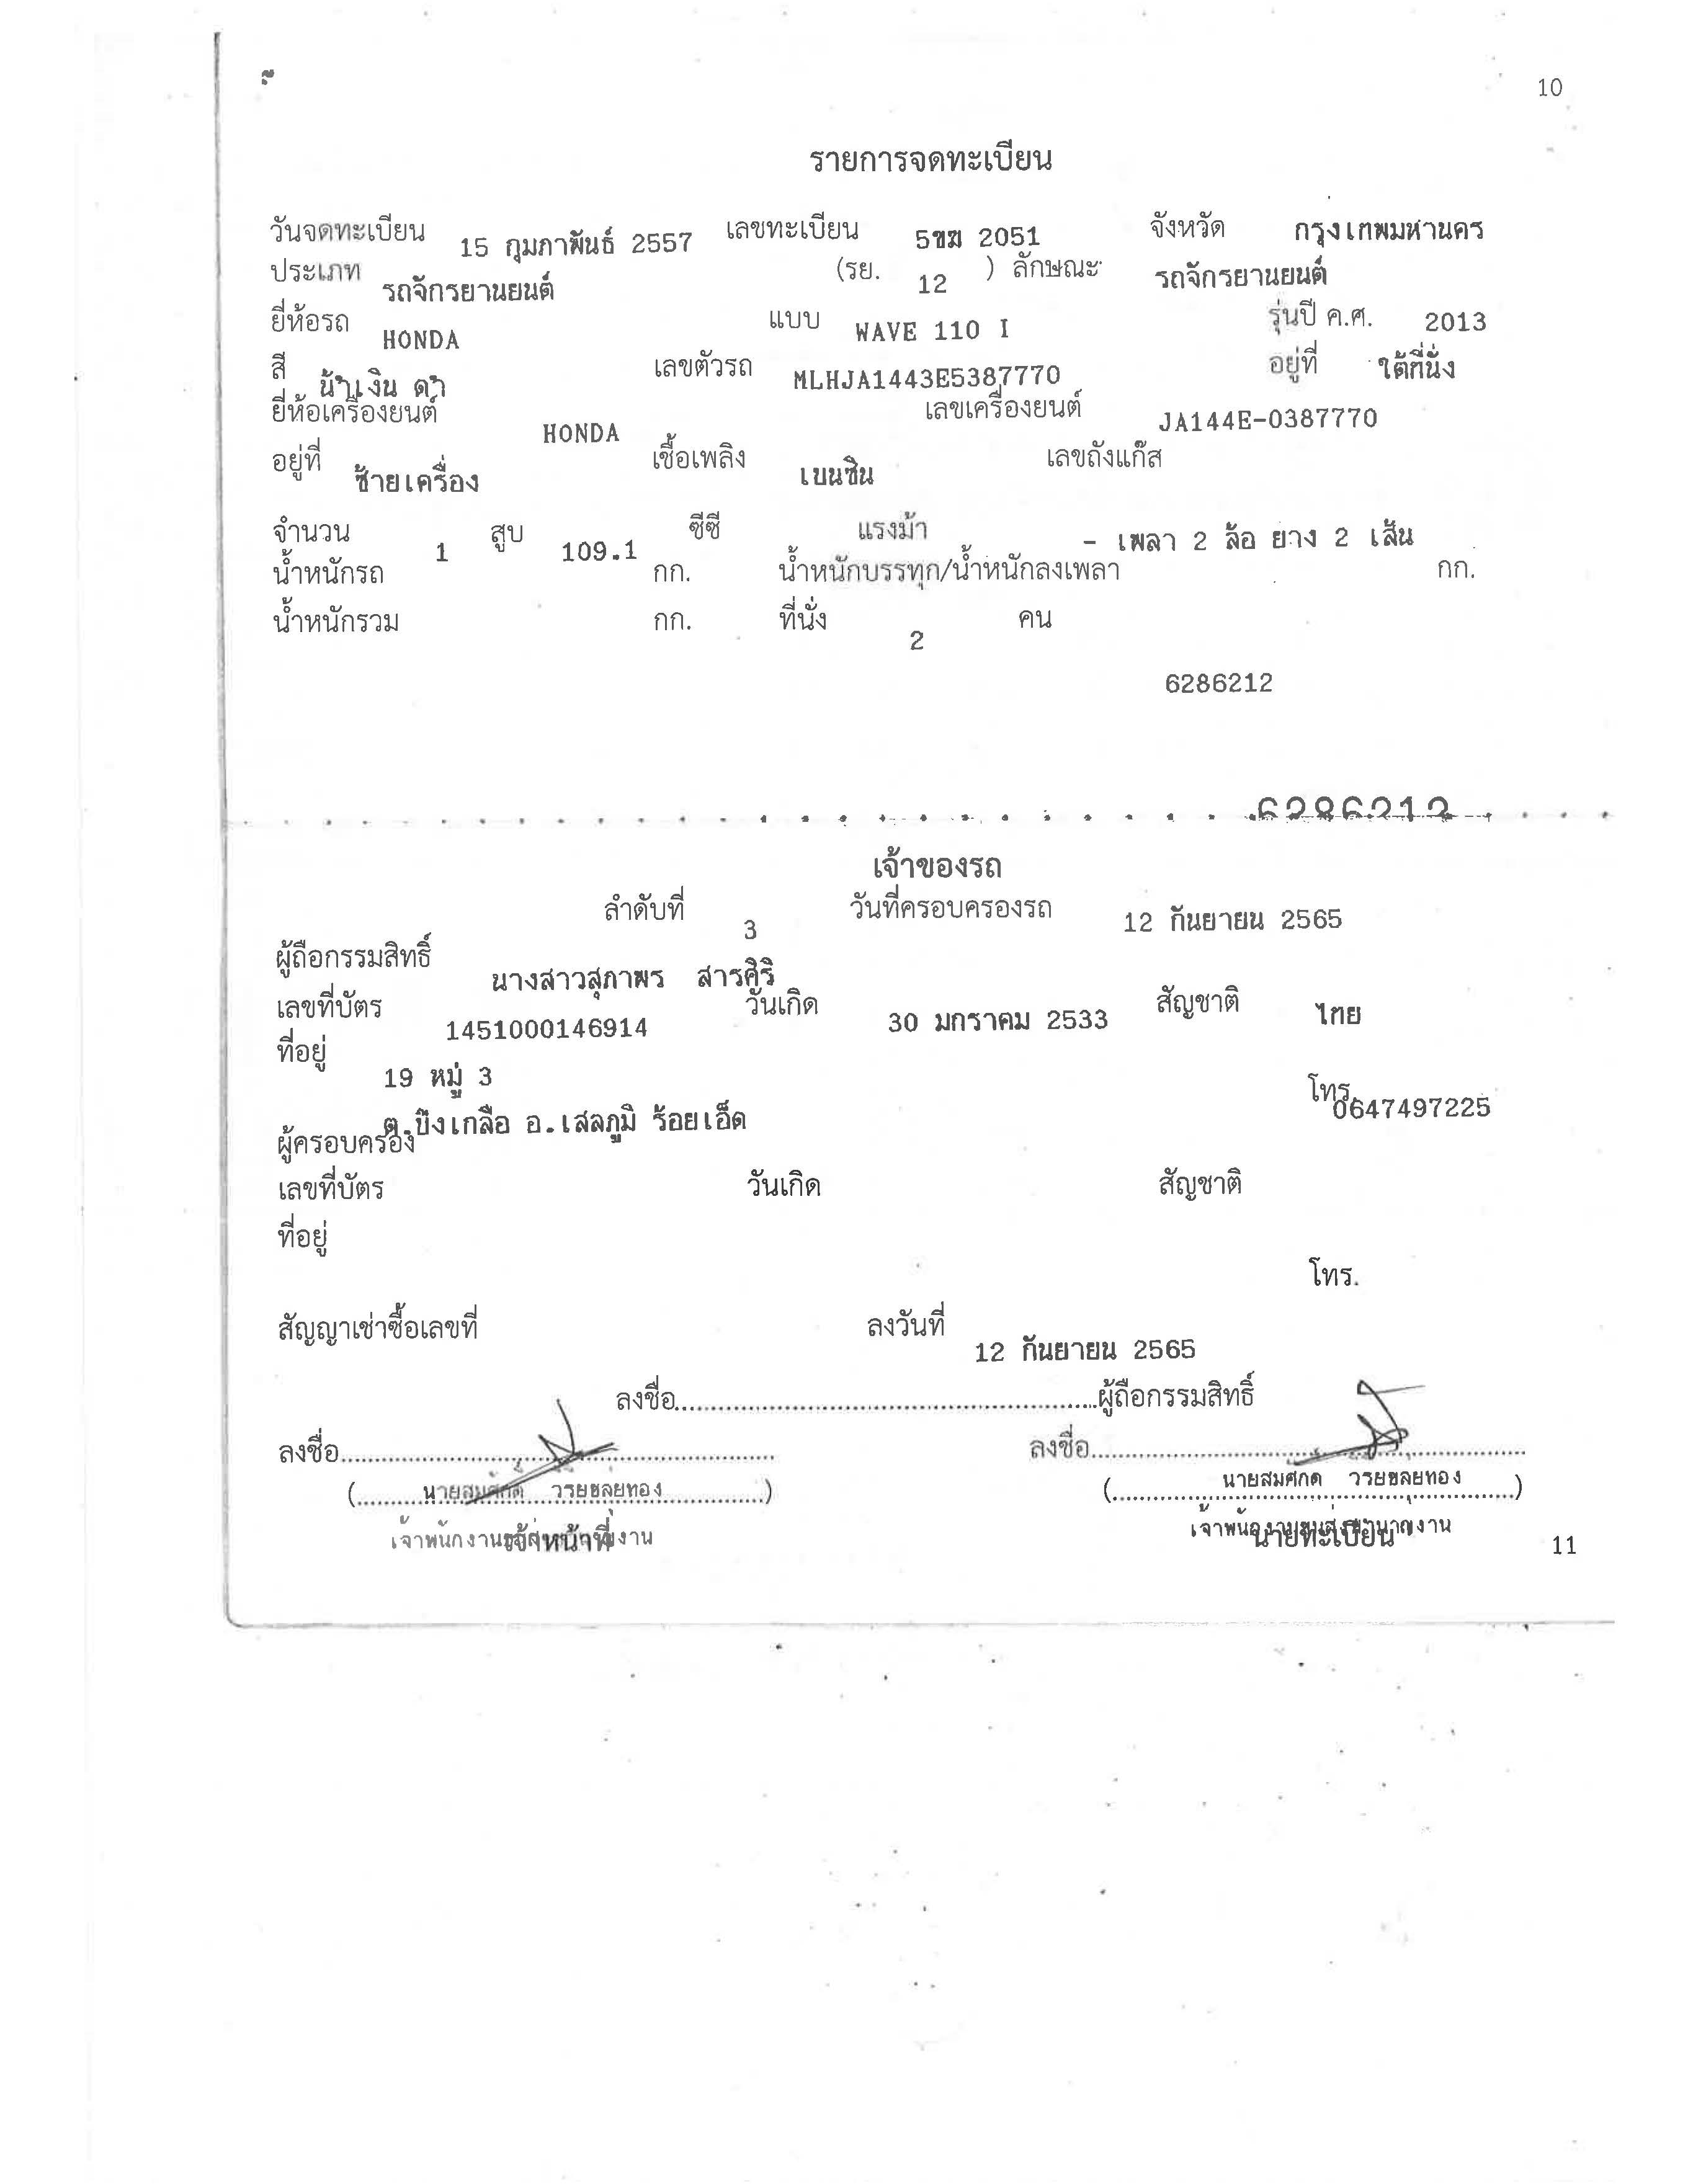 10
รายการจดทะเบียน
วันจดทะเบียน 15 กุมภาพันธ์ 2557 เลขทะเบียน 5ขฆ 2051 จังหวัด กรุงเทพมหานคร
ประเภท รถจักรยานยนต์ (รย. 12 ) ลักษณะ รถจักรยานยนต์
ยี่ห้อรถ HONDA แบบ WAVE 110 I รุ่นปี ค.ศ. 2013
สี น้ำเงิน ดำ เลขตัวรถ MLHJA1443E5387770 อยู่ที่ ใต้ที่นั่ง
ยี่ห้อเครื่องยนต์ HONDA เลขเครื่องยนต์ JA144E-0387770
อยู่ที่ ซ้ายเครื่อง เชื้อเพลิง เบนซิน เลขถังแก๊ส
จำนวน 1 สูบ 109.1 ซีซี แรงม้า - เพลา 2 ล้อ ยาง 2 เส้น
น้ำหนักรถ กก. น้ำหนักบรรทุก/น้ำหนักลงเพลา กก.
น้ำหนักรวม กก. ที่นั่ง 2 คน
6286212
6286212
เจ้าของรถ
ลำดับที่ 3 วันที่ครอบครองรถ 12 กันยายน 2565
ผู้ถือกรรมสิทธิ์ นางสาวสุภาพร สารศิริ
เลขที่บัตร 1451000146914 วันเกิด 30 มกราคม 2533 สัญชาติ ไทย
ที่อยู่ 19 หมู่ 3
ต.บึงเกลือ อ.เสลภูมิ ร้อยเอ็ด โทร. 0647497225
ผู้ครอบครอง
เลขที่บัตร วันเกิด สัญชาติ
ที่อยู่
โทร.
สัญญาเช่าซื้อเลขที่ ลงวันที่ 12 กันยายน 2565
ลงชื่อ ผู้ถือกรรมสิทธิ์
ลงชื่อ ลงชื่อ
( นายสมศักดิ์ ) ( นายสมศักดิ์ )
เจ้าหน้าที่ นายทะเบียน
11